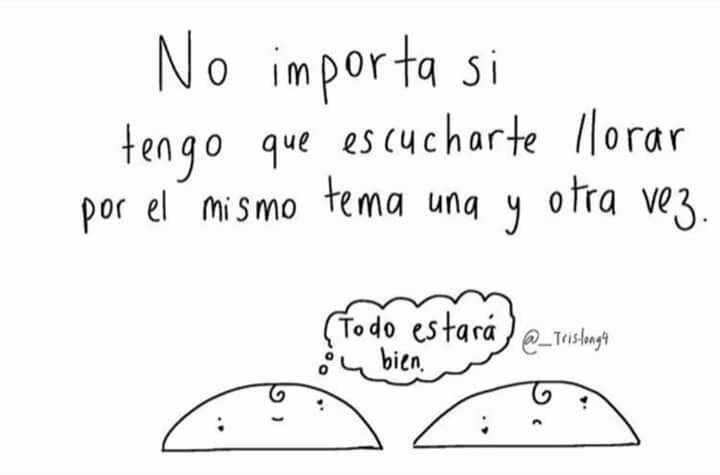 No importa si
tengo que escucharte llorar
por el mismo tema una y otra vez.
Todo estará
bien.
@_Tris-long4